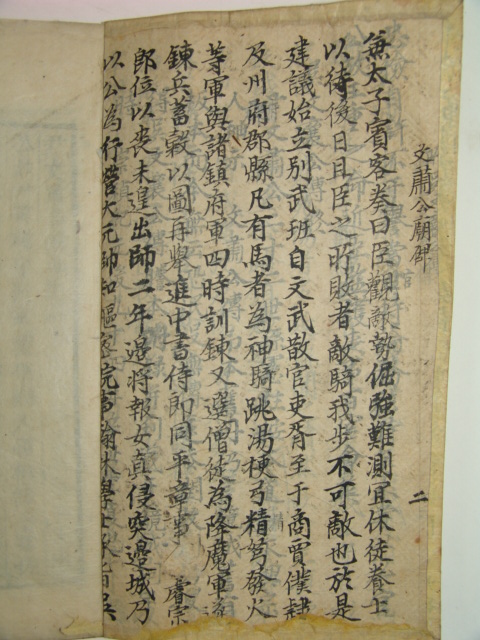 文肅公廟碑
二
兼太子賓客奏曰臣觀敵勢倔強難測冝休徒養士
以待後日且臣之所敗者敵騎我步不可敵也於是
建議始立別武班自文武散官吏胥至于商賈僕隸
及州府郡縣凡有馬者為神騎跳湯梗弓精弩發火
等軍與諸鎮府軍四時訓鍊又選僧徒為降魔軍
鍊兵蓄穀以圖再擧進中書侍郎同平章事 睿宗
郎位以喪未遑出師二年邉將報女真侵突邉城乃
以公為行營大元帥知樞密院翰林學士承旨吳